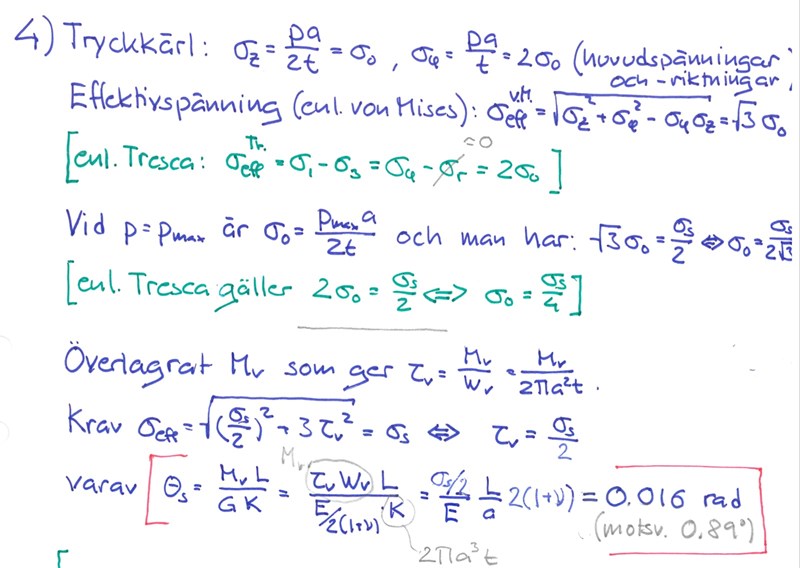 4) Tryckkärl: σ_z = pa/2t = σ_0, σ_φ = pa/t = 2σ_0 (huvudspänningar
och -riktningar)
Effektivspänning (enl. von Mises): σ_eff^v.M. = √(σ_z² + σ_φ² - σ_φ σ_z) = √3 σ_0
[enl. Tresca: σ_eff^Tr. = σ_1 - σ_3 = σ_φ - σ_r = 2σ_0]
=0
Vid p = p_max är σ_0 = p_max a/2t och man har: √3 σ_0 = σ_s/2 ⇔ σ_0 = σ_s/2√3
[enl. Tresca gäller 2σ_0 = σ_s/2 ⇔ σ_0 = σ_s/4]
Överlagrat M_v som ger τ_v = M_v/W_v = M_v/2πa²t.
Krav σ_eff = √((σ_s/2)² + 3τ_v²) = σ_s ⇔ τ_v = σ_s/2
M_v
varav [Θ_s = M_v L/G K = τ_v W_v L/(E/2(1+ν) K) = (σ_s/2)/E L/a 2(1+ν) = 0.016 rad
(motsv. 0.89°)
2πa³t
[